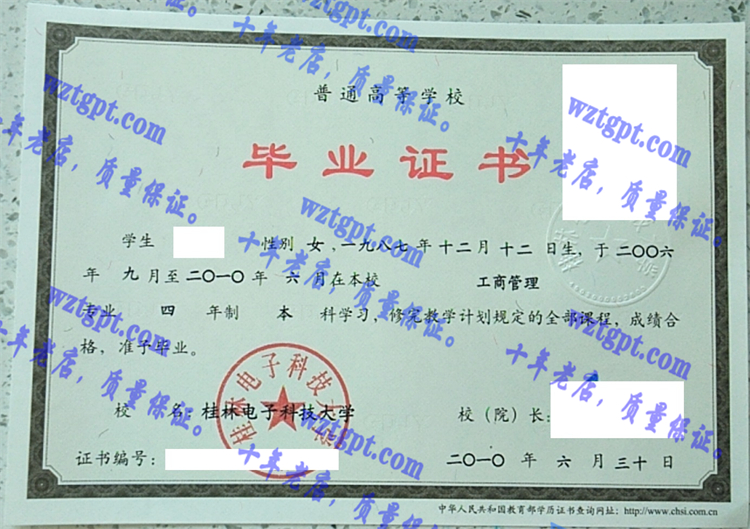 普通高等学校
毕业证书
学生 性别 女，一九八七年十二月十二日生，于二〇〇六
年 九月至二〇一〇年 六月在本校 工商管理
专业 四 年制 本 科学习，修完教学计划规定的全部课程，成绩合
格，准予毕业。
校 名：桂林电子科技大学
校（院）长：
证书编号：
二〇一〇 年 六 月 三十 日
中华人民共和国教育部学历证书查询网址：http://www.chsi.com.cn
桂林电子科技大学
wztgpt.com
十年老店，质量保证。
wztgpt.com
十年老店，质量保证。
wztgpt.com
十年老店，质量保证。
wztgpt.com
十年老店，质量保证。
wztgpt.com
十年老店，质量保证。
wztgpt.com
十年老店，质量保证。
wztgpt.com
十年老店，质量保证。